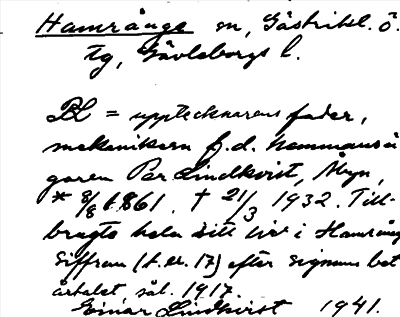 Hamrånge sn, Gästrikl. ö.
tg, Gävleborgs l.
BL = upptecknarens fader,
mekanikern f.d. hemmansä
garen Per Lindkvist, Åbyn,
* 8/8 1861. † 21/3 1932. Till-
bragte hela sitt liv i Hamrång
Siffran (t.ex. 17) efter signum bet
årtalet sål. 1917.
Einar Lindkvist 1941.